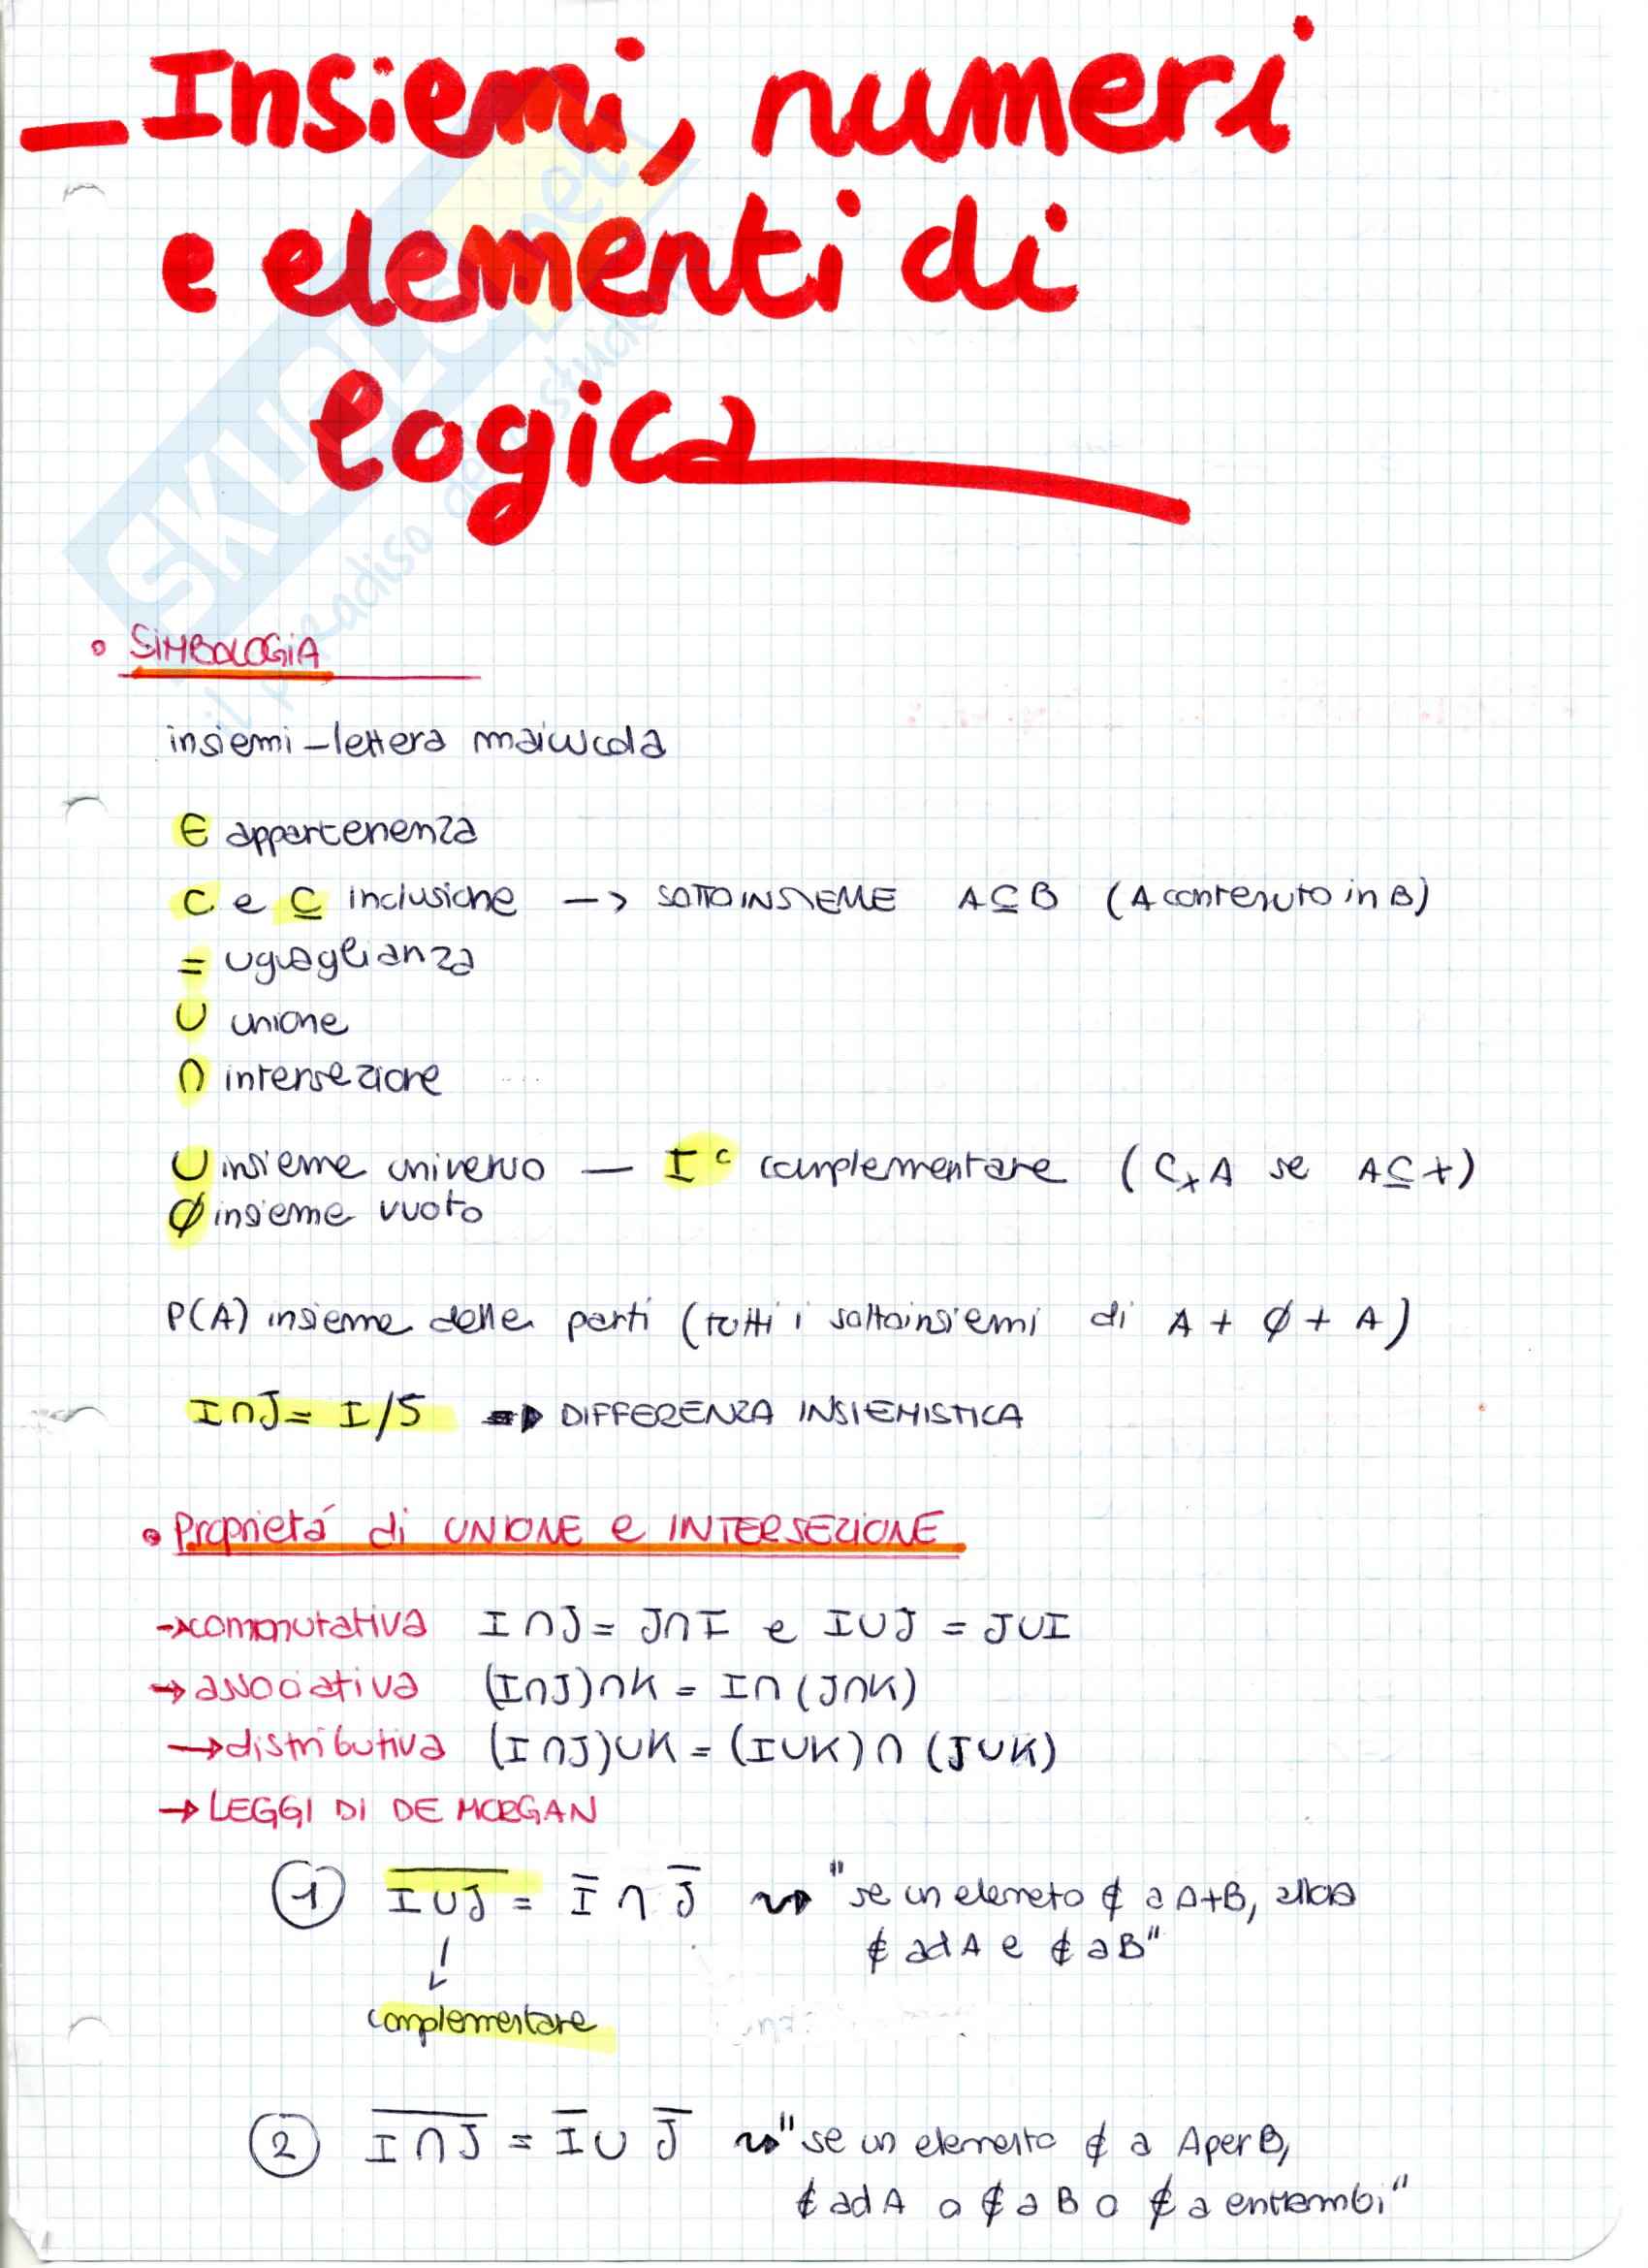 — Insiemi, numeri
e elementi di
logica
SKUOLA.net
il paradiso dello studente
• SIMBOLOGIA
insiemi – lettera maiuscola
∈ appartenenza
⊂ e ⊆ inclusione —> SOTTOINSIEME A⊆B (A contenuto in B)
= uguaglianza
∪ unione
∩ intersezione
U insieme universo — Iᶜ complementare (CₓA se A⊆X)
∅ insieme vuoto
P(A) insieme delle parti (tutti i sottoinsiemi di A + ∅ + A)
I∩J = I/5 => DIFFERENZA INSIEMISTICA
• Proprietá di UNIONE e INTERSEZIONE
→ commutativa I∩J = J∩I e I∪J = J∪I
→ associativa (I∩J)∩K = I∩(J∩K)
→ distributiva (I∩J)∪K = (I∪K)∩(J∪K)
→ LEGGI DI DE MORGAN
① I̅∪̅J̅ = I̅ ∩ J̅ ⇝ "se un elemeto ∉ a A+B, allora
∉ ad A e ∉ a B"
↓
complementare
② I̅∩̅J̅ = I̅ ∪ J̅ ⇝ "se un elemento ∉ a A per B,
∉ ad A o ∉ a B o ∉ a entrambi"